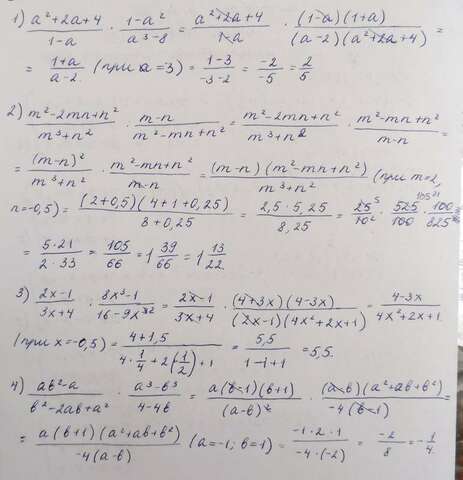 1) a²+2a+4 / 1-a · 1-a² / a³-8 = a²+2a+4 / 1-a · (1-a)(1+a) / (a-2)(a²+2a+4) =
= 1+a / a-2 (при a=-3) = 1-3 / -3-2 = -2 / -5 = 2/5
2) m²-2mn+n² / m³+n² : m-n / m²-mn+n² = m²-2mn+n² / m³+n² · m²-mn+n² / m-n =
= (m-n)² / m³+n² · m²-mn+n² / m-n = (m-n)(m²-mn+n²) / m³+n² (при m=2,
n=-0,5) = (2+0,5)(4+1+0,25) / 8+0,25 = 2,5·5,25 / 8,25 = 25 / 10 · 525 / 100 · 100 / 825 =
= 5·21 / 2·33 = 105 / 66 = 1 39/66 = 1 13/22
3) 2x-1 / 3x+4 : 8x³-1 / 16-9x² = 2x-1 / 3x+4 · (4+3x)(4-3x) / (2x-1)(4x²+2x+1) = 4-3x / 4x²+2x+1
(при x=-0,5) = 4+1,5 / 4·1/4+2(1/2)+1 = 5,5 / 1-1+1 = 5,5.
4) ab²-a / b²-2ab+a² · a³-b³ / 4-4b = a(b-1)(b+1) / (a-b)² · (a-b)(a²+ab+b²) / -4(b-1) =
= a(b+1)(a²+ab+b²) / -4(a-b) (a=-1; b=1) = -1·2·1 / -4·(-2) = -2 / 8 = -1/4.